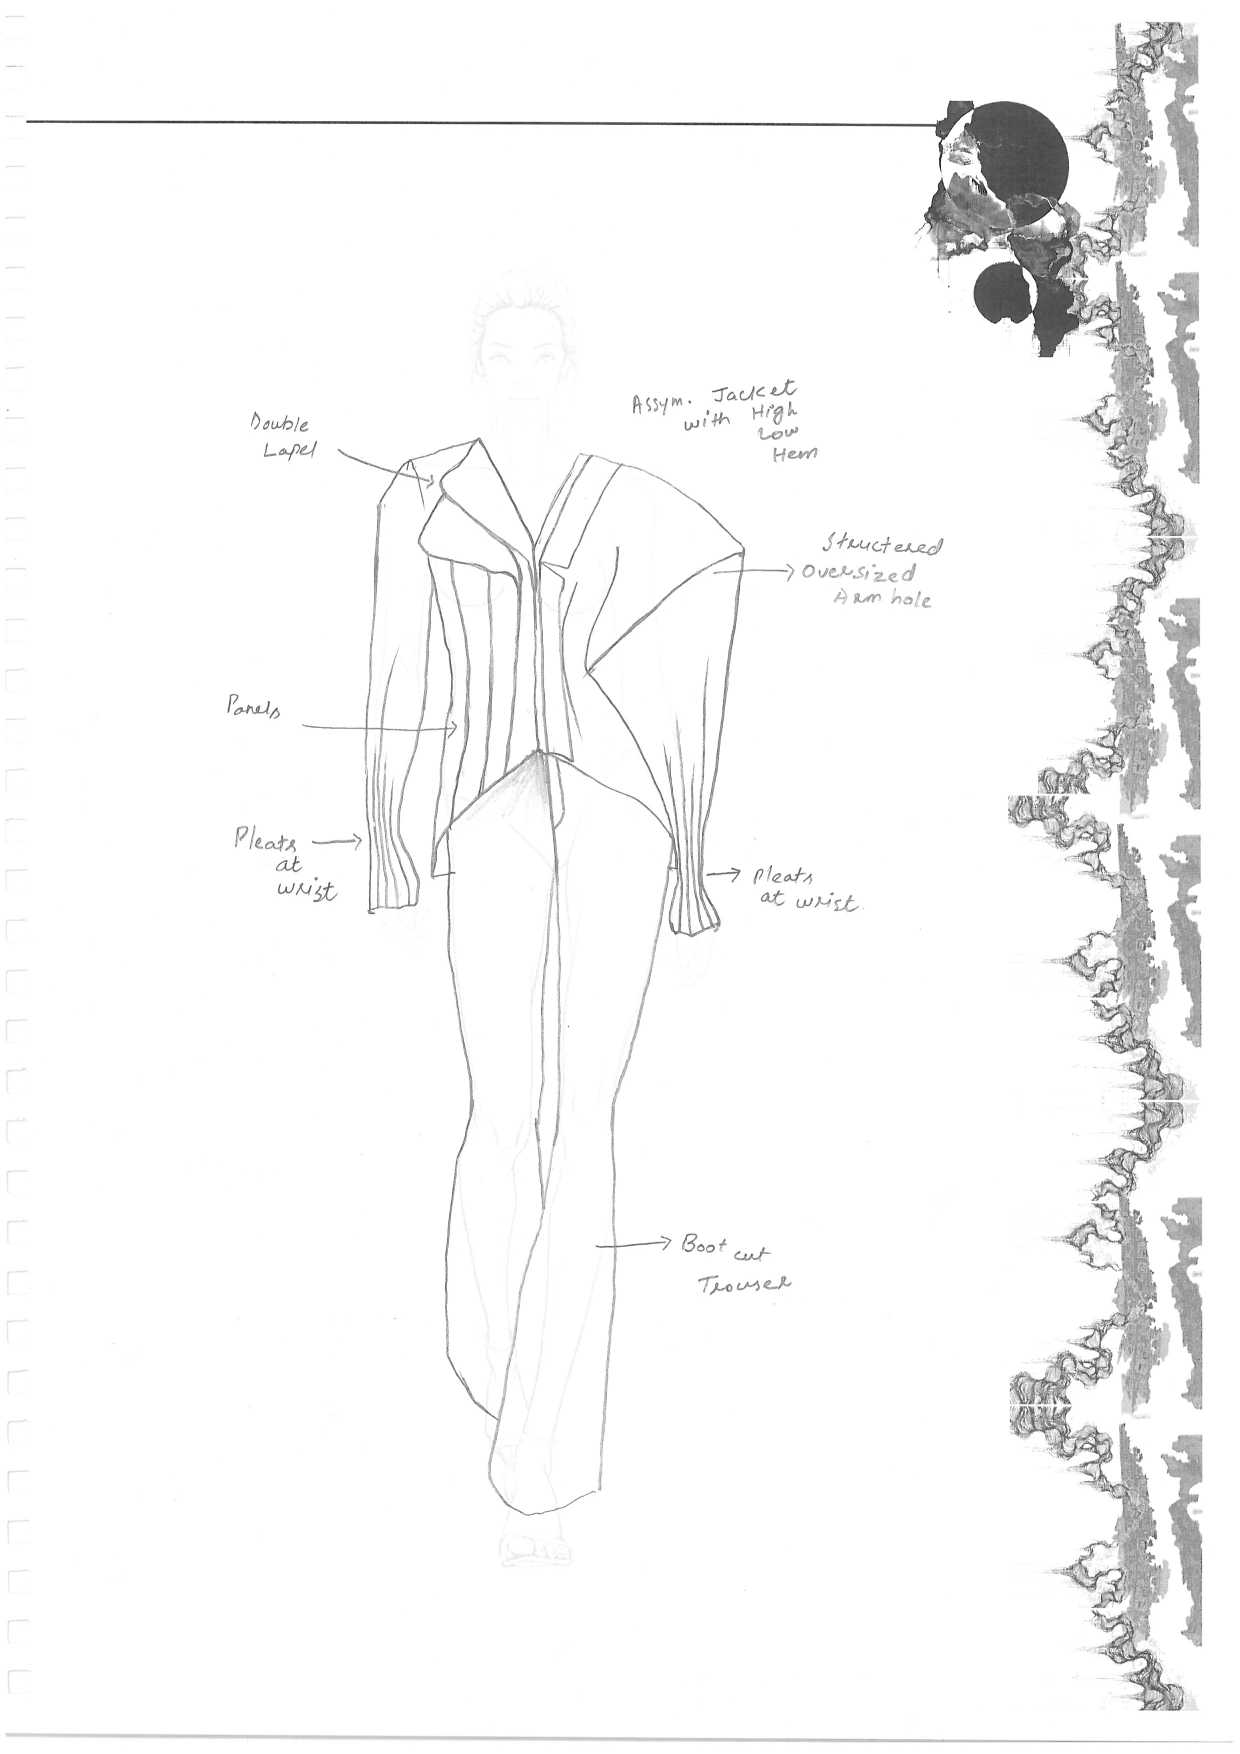 Assym. Jacket
with High
Low
Hem
Double
Lapel
Structered
Oversized
Arm hole
Panels
Pleats
at
wrist
Pleats
at wrist.
Boot cut
Trouser